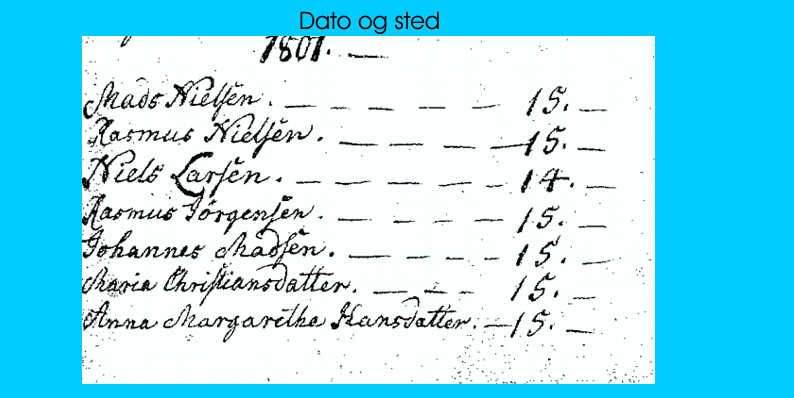 Dato og sted
1801. —
Mads Nielsen. — — — — — 15. —
Rasmus Nielsen. — — — — 15. —
Niels Larsen. — — — — — 14. —
Rasmus Jörgensen. — — — — 15. —
Johannes Madsen. — — — — 15. —
Maria Christiansdatter. — — — 15. —
Anna Margarethe Hansdatter. — 15. —